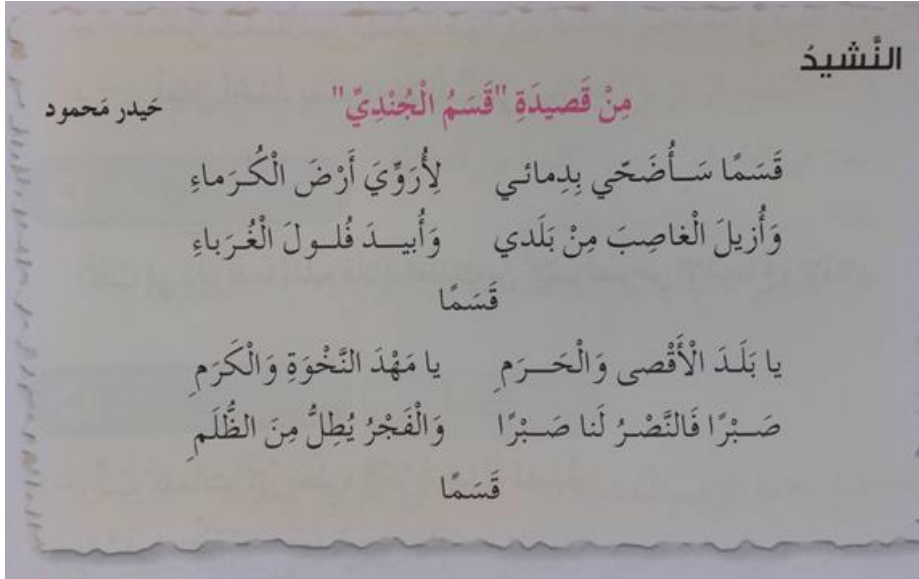 النَّشيدُ
مِنْ قَصيدَةِ "قَسَمُ الْجُنْدِيِّ"
حَيدر مَحمود
قَسَمًا سَــأُضَحّي بِدِمائـي لِأُرَوِّيَ أَرْضَ الْكُـرَماءِ
وَأُزيلَ الْغاصِبَ مِنْ بَلَدي وَأُبيــدَ فُلــولَ الْغُـرَباءِ
قَسَمًا
يا بَلَـدَ الْأَقْصى وَالْحَــرَمِ يا مَهْدَ النَّخْوَةِ وَالْكَرَمِ
صَــبْرًا فَالنَّصْـرُ لَنا صَــبْرًا وَالْفَجْرُ يُطِلُّ مِنَ الظُّلَمِ
قَسَمًا